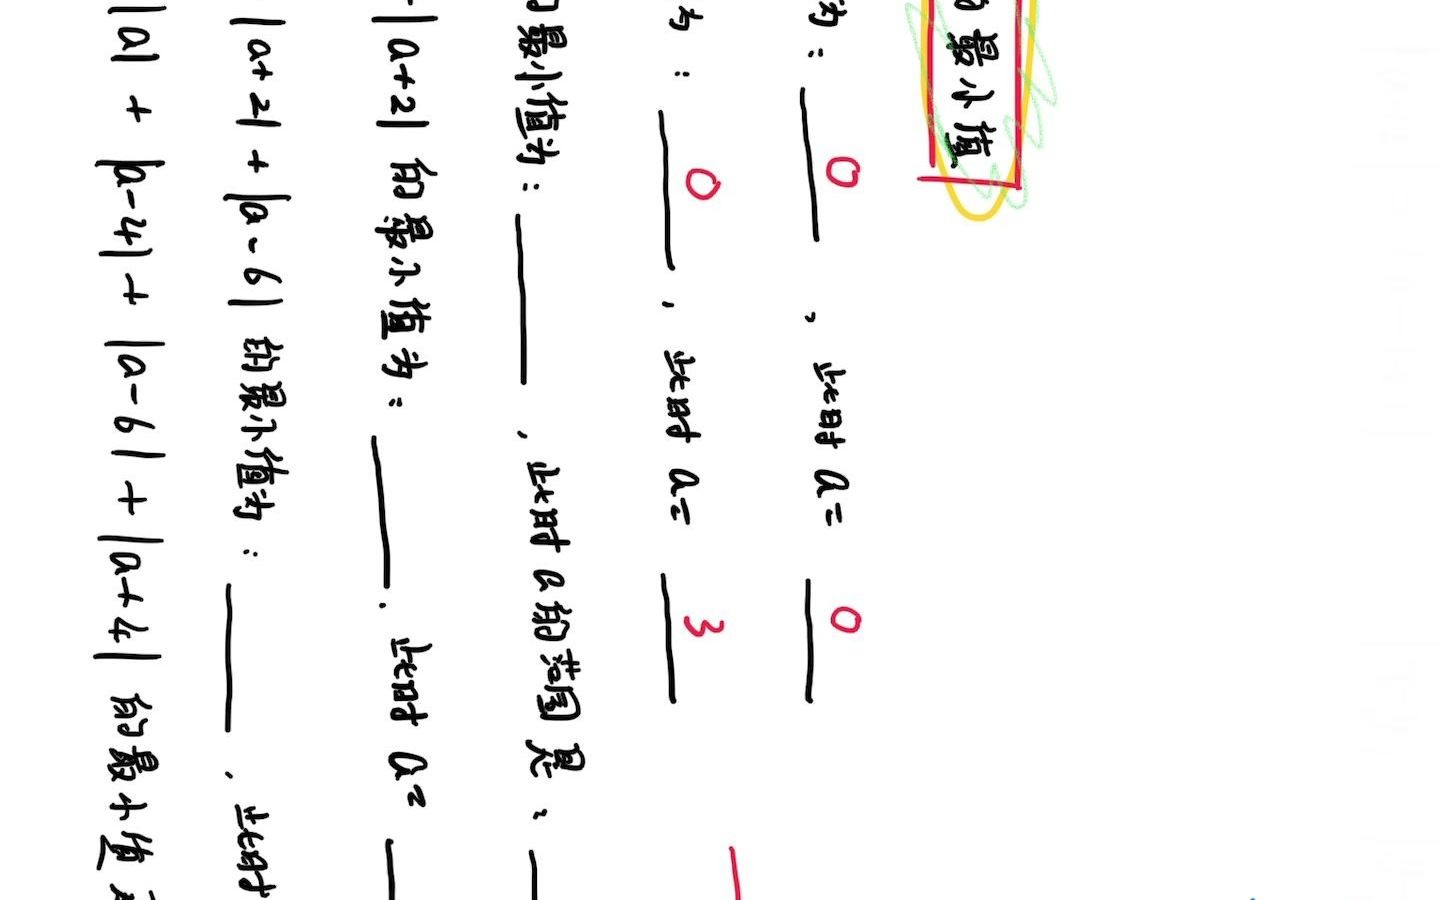 最小值
为： 0 ，此时 a= 0
为： 0 ，此时 a= 3
的最小值为：，此时 a 的范围是：
|a+2| 的最小值为：．此时 a=
|a+2| + |a-6| 的最小值为：，此时
|a| + |a-4| + |a-6| + |a+4| 的最小值